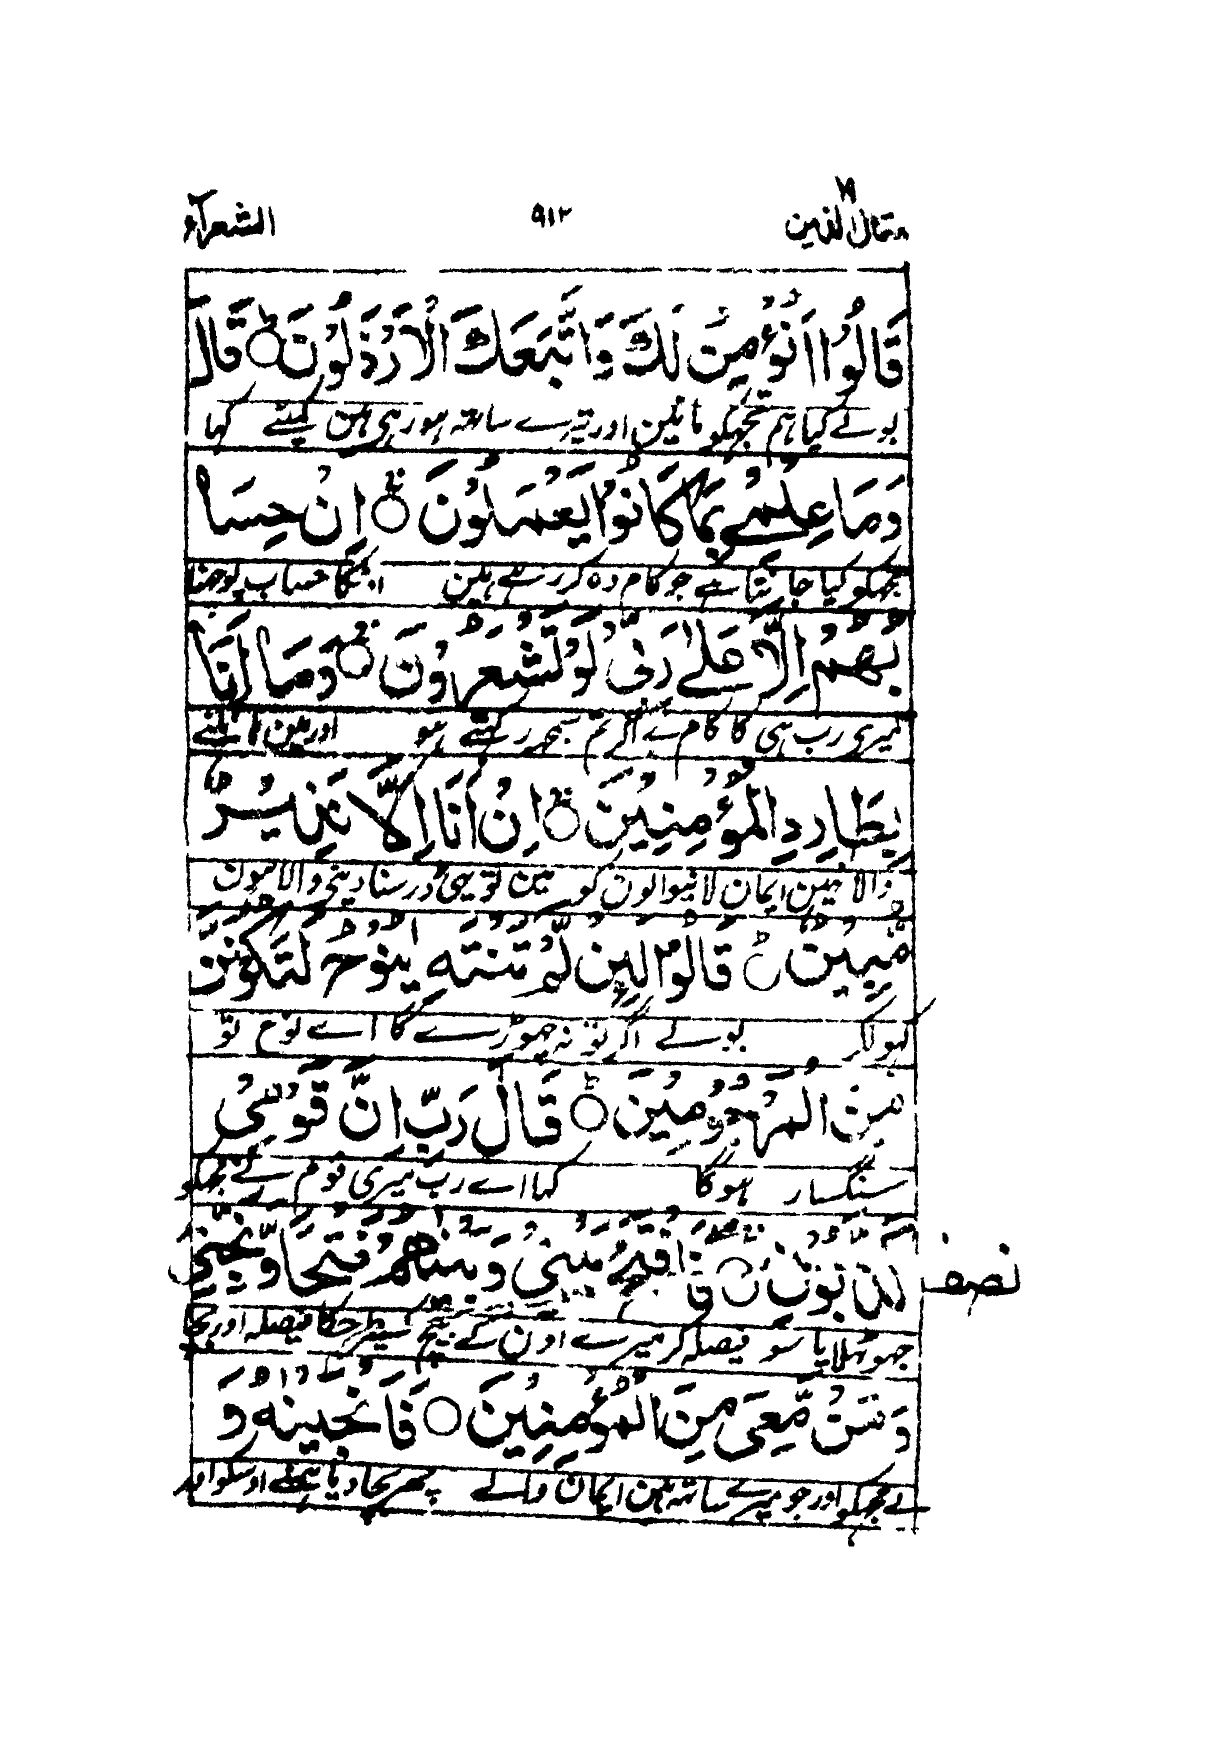 وقال الذين ١٩ ٩١٢ الشعرآء
قَالُوْٓا اَنُؤْمِنُ لَكَ وَاتَّبَعَكَ الْاَرْذَلُوْنَ ۝ قَالَ
بولے کیا ہم تجھکو مانین اور تیرے ساتھ ہو رہی ہین کمینے کہا
وَمَا عِلْمِيْ بِمَا كَانُوْا يَعْمَلُوْنَ ۝ اِنْ حِسَا
مجھکو کیا جاننا ہے جو کام وہ کر رہے ہین اونکا حساب پوچھنا
بُهُمْ اِلَّا عَلٰى رَبِّيْ لَوْ تَشْعُرُوْنَ ۝ وَمَا اَنَا
میری رب ہی کا کام ہے اگر تم سمجھ رکھتے ہو اور مین ہانکنے
بِطَارِدِ الْمُؤْمِنِيْنَ ۝ اِنْ اَنَا اِلَّا نَذِيْرٌ
والا نہین ایمان لانیوالون کو مین تو یہی ڈر سنا دینے والا ہون
مُّبِيْنٌ ۝ قَالُوْا لَئِنْ لَّمْ تَنْتَهِ يٰنُوْحُ لَتَكُوْنَنَّ
کھولکر بولے اگر تو نہ چھوڑے گا اے نوح تو
مِنَ الْمَرْجُوْمِيْنَ ۝ قَالَ رَبِّ اِنَّ قَوْمِيْ
سنگسار ہوگا کہا اے رب میری قوم نے مجھکو
كَذَّبُوْنِ ۝ فَافْتَحْ بَيْنِيْ وَبَيْنَهُمْ فَتْحًا وَّنَجِّنِيْ
نصف
جھوٹلایا سو فیصلہ کر میرے اون کے بیچ کسیطرحکا فیصلہ اور بچا
وَمَنْ مَّعِيَ مِنَ الْمُؤْمِنِيْنَ ۝ فَاَنْجَيْنٰهُ وَ
لے مجھکو اور جو میرے ساتھ ہین ایمان والے پھر بچا دیا ہمنے اوسکو اور